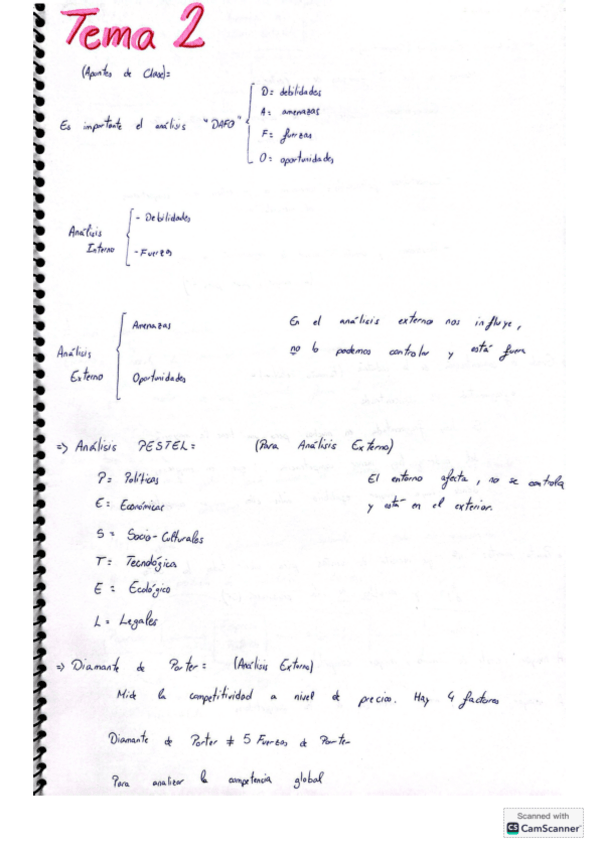 Tema 2
(Apuntes de Clase):
Es importante el análisis "DAFO"
D= debilidades
A= amenazas
F= fuerzas
O= oportunidades
Análisis Interno
- Debilidades
- Fuerzas
Análisis Externo
Amenazas
Oportunidades
En el análisis externo nos influye,
no lo podemos controlar y está fuera
=> Análisis PESTEL= (Para Análisis Externo)
P= Políticas
E= Económicas
S= Socio-Culturales
T= Tecnológica
E= Ecológico
L= Legales
El entorno afecta, no se controla
y está en el exterior.
=> Diamante de Porter= (Análisis Externo)
Mide la competitividad a nivel de precios. Hay 4 factores
Diamante de Porter ≠ 5 Fuerzas de Porter
Para analizar la competencia global
Scanned with
CS CamScanner